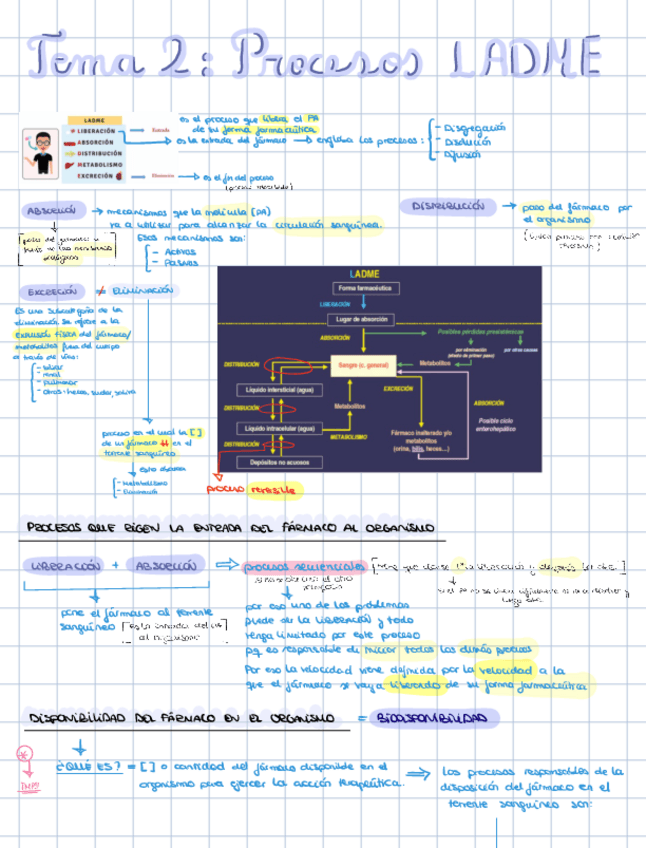 Tema 2: Procesos LADME
LADME
LIBERACIÓN
ABSORCIÓN
DISTRIBUCIÓN
METABOLISMO
EXCRECIÓN
Entrada
es el proceso que libera el PA
de su forma farmacéutica
es la entrada del fármaco → engloba los procesos:
- Disgregación
- Disolución
- Difusión
→ es el fin del proceso
ABSORCIÓN → mecanismos que la molécula (PA)
va a utilizar para alcanzar la circulación sanguínea.
Esos mecanismos son:
- Activos
- Pasivos
DISTRIBUCIÓN → paso del fármaco por
el organismo
EXCRECIÓN ≠ ELIMINACIÓN
Es una subcategoría de la
eliminación, se refiere a la
expulsión física del fármaco/
metabolitos fuera del cuerpo
a través de vías:
- biliar
- renal
- pulmonar
- otros: heces, sudor, saliva
proceso en el cual la [ ]
de un fármaco ↓↓ en el
torrente sanguíneo
- Metabolismo
LADME
Forma farmacéutica
LIBERACIÓN
Lugar de absorción
ABSORCIÓN
Posibles pérdidas presistémicas
por eliminación
(efecto de primer paso)
por otras causas
DISTRIBUCIÓN
Sangre (c. general)
Metabolitos
EXCRECIÓN
Líquido intersticial (agua)
ABSORCIÓN
DISTRIBUCIÓN
Metabolitos
Posible ciclo
enterohepático
Líquido intracelular (agua)
METABOLISMO
Fármaco inalterado y/o
metabolitos
(orina, bilis, heces...)
DISTRIBUCIÓN
Depósitos no acuosos
proceso reversible
PROCESOS QUE RIGEN LA ENTRADA DEL FÁRMACO AL ORGANISMO
LIBERACIÓN + ABSORCIÓN ⇒ procesos secuenciales
pone el fármaco al torrente
sanguíneo
por eso uno de los problemas
puede ser la LIBERACIÓN y todo
tenga limitado por este proceso
pq es responsable de iniciar todos los demás procesos
Por eso la velocidad viene definida por la velocidad a la
que el fármaco se vaya liberando de su forma farmacéutica
DISPONIBILIDAD DEL FÁRMACO EN EL ORGANISMO = BIODISPONIBILIDAD
¿QUÉ ES? = [ ] o cantidad del fármaco disponible en el
organismo para ejercer la acción terapéutica.
⇒ Los procesos responsables de la
disposición del fármaco en el
torrente sanguíneo son: